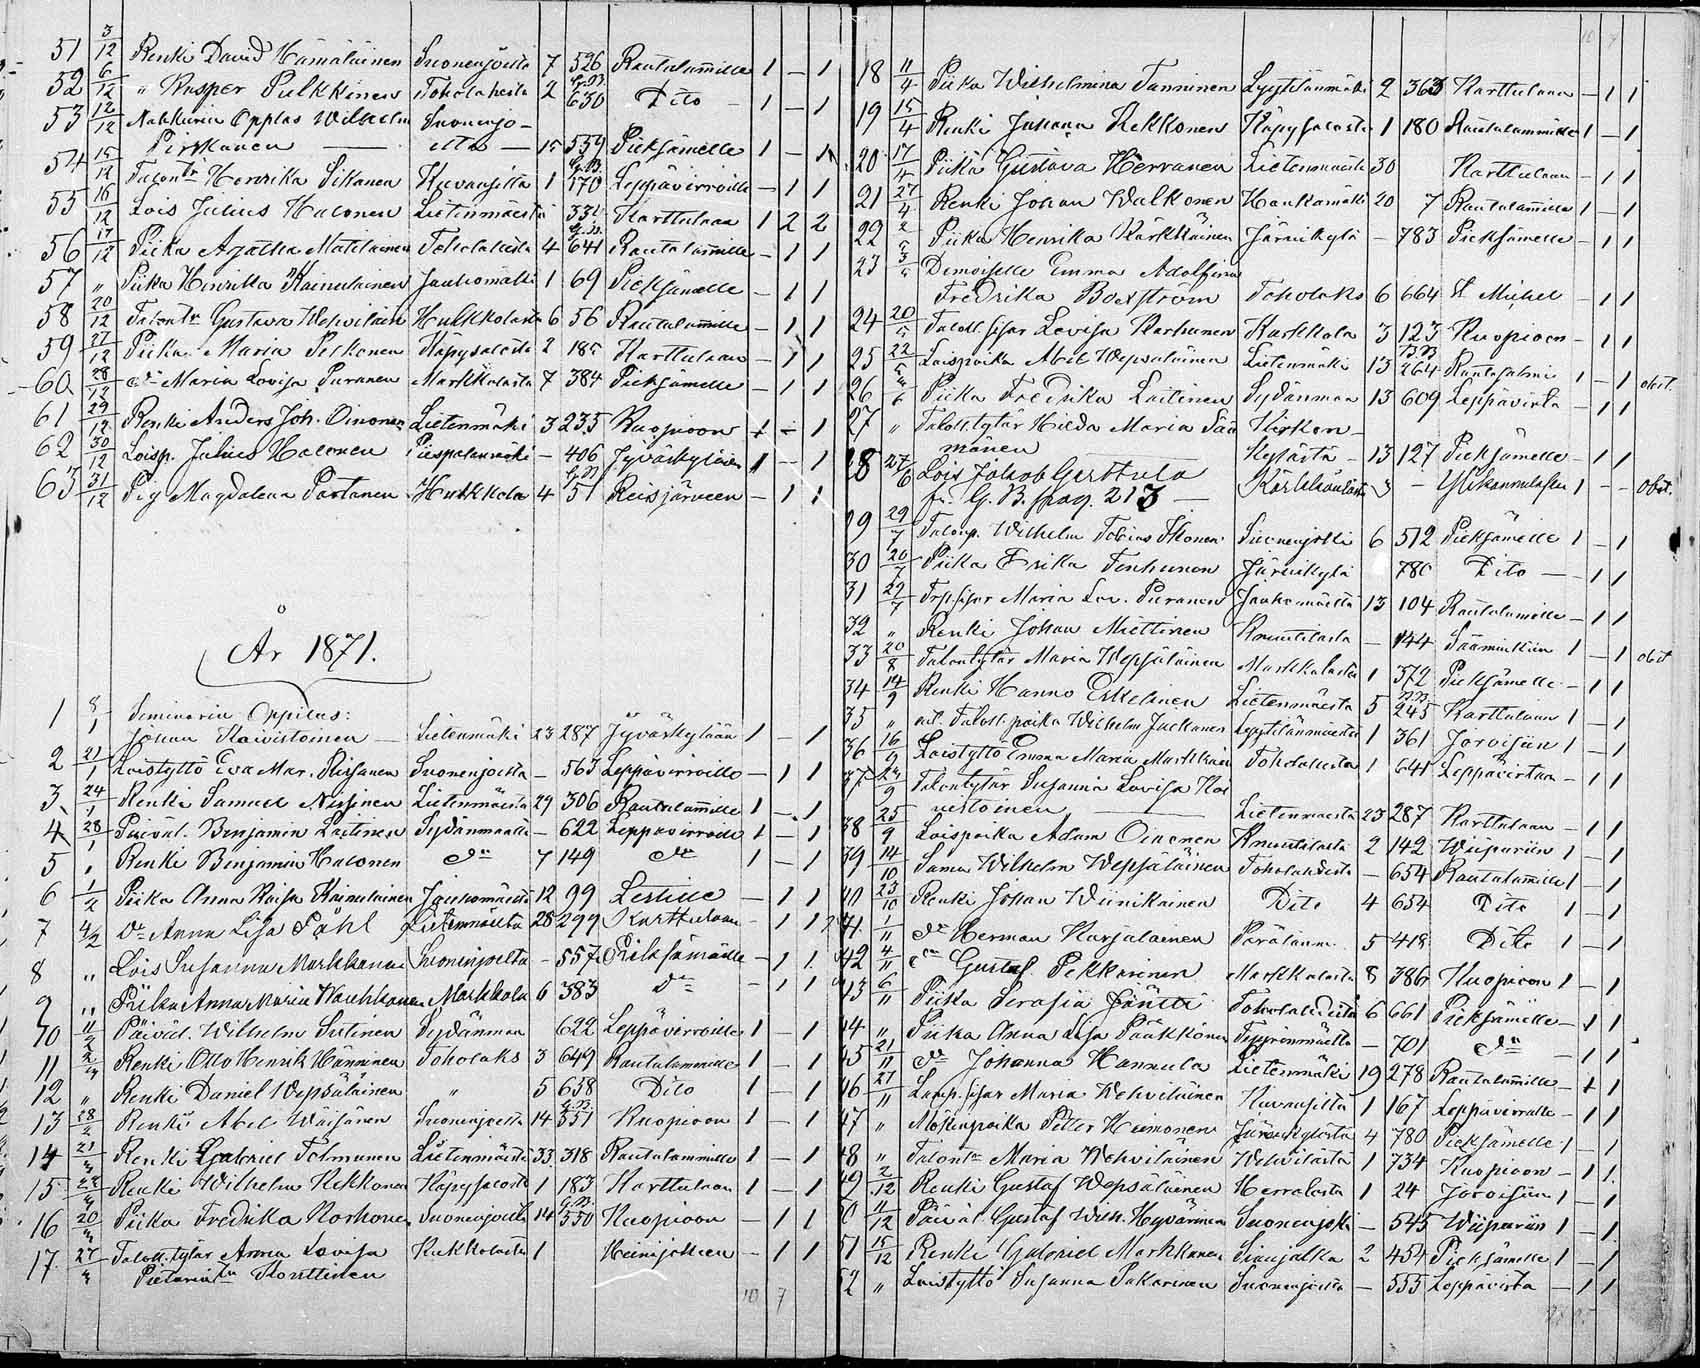 51 3/12 Renki David Hämäläinen Suonenjoelta 7 526 Rautalammille 1 – 1
52 6/12 " Kasper Pulkkinen Toholahesta 2 630 Dito – 1 – 1
53 12/12 Opplas Wilhelm Suonenjo-
Pirkkanen elta – 15 559 Pieksämelle 1 – 1
54 15/12 Talontr Henrika Sikanen Kuvansilta 1 170 Leppävirroille – 1 1
55 16/12 Lois Julius Halonen Lietenmäestä 334 Karttulaan 1 2 2
56 17/12 Piika Agatha Matilainen Toholahesta 4 641 Rautalammille – 1 1
57 " Piika Henrika Kainulainen Jauhomäki 1 69 Pieksämelle – 1 1
58 20/12 Talontr Gustava Wehviläin Hulkkolasta 6 56 Rautalammille – 1 1
59 27/12 Piika Maria Pelkonen Käpysalosta 2 185 Karttulaan – 1 1
60 28/12 do Maria Lovisa Puranen Markkalasta 7 384 Pieksämelle – 1 1
61 29/12 Renki Anders Joh. Oinonen Lietenmäki 3 235 Kuopioon 1 – 1
62 30/12 Loisp. Julius Halonen Piispalanmäki – 406 Jyväskylään 1 – 1
63 31/12 Pig Magdalena Partanen Hulkkola 4 51 Reisjärveen – 1 1
År 1871.
1 8/1 Seminarin Oppilas:
Johan Koivistoinen – Lietenmäki 23 287 Jyväskylään 1 – 1
2 21/1 Loistyttö Eva Mar. Suonenjoelta – 563 Leppävirroille – 1 1
3 24/1 Renki Samuel Nissinen Lietenmäestä 29 306 Rautalammille 1 – 1
4 28/1 Päiväl. Benjamin Laitinen Sydänmaalta – 622 Leppävirroille 1 – 1
5 " Renki Benjamin Halonen do 7 149 do 1 – 1
6 1/2 Piika Anna Kaisa Kainulainen Jauhomäestä 12 99 – 1 1
7 4/2 do Anna Lisa Påhl Lietenmäestä 28 299 Karttulaan – 1 1
8 " Lois Susanna Markkanen Suonenjoelta – 557 Pieksämäelle – 1 1
9 " Piika Anna Maria Markkola 6 383 do – 1 1
10 11/2 Päiväl. Wilhelm Sutinen Sydänmaa 622 Leppävirroille 1 – 1
11 Renki Otto Henrik Hänninen Toholaks 3 649 Rautalammille 1 – 1
12 " Renki Daniel Wepsäläinen " 5 638 Dito 1 – 1
13 28/2 Renki Abel Wäisänen Suonenjoelta 14 551 Kuopioon 1 – 1
14 21/3 Renki Gabriel Tolmunen Lietenmäestä 33 318 Rautalammille 1 – 1
15 22/3 Renki Wilhelm Kekkonen Käpysalosta 1 183 Karttulaan 1 – 1
16 20/3 Piika Fredrika Korhonen Suonenjoelta 14 550 Kuopioon – 1 1
17 27/3 Talol. tytär Anna Lovisa Kukkolasta 1 – 1 1
Konttinen
10 7
18 11/4 Piika Wilhelmina Tanninen Lyytilänmäki 2 363 Karttulaan – 1 1
19 15/4 Renki Juhana Kekkonen Käpysalosta 1 180 Rautalammille 1 – 1
20 17/4 Piika Gustava Herranen Lietenmäestä 30 Karttulaan – 1 1
21 27/4 Renki Johan Walkonen Haukamäki 20 7 Rautalammille 1 – 1
22 2/5 Piika Henrika Kärkkäinen Järvikylä – 783 Pieksämelle – 1 1
23 3/5 Demoiselle Emma Adolfina
Fredrika Boxström Toholaks 6 664 St Mickel – 1 1
24 20/5 Talol. sisar Lovisa Karhunen Karkkola 3 123 Kuopioon – 1 1
25 22/5 Loispoika Abel Wepsäläinen Lietenmäki 13 264 Rantasalmi 1 – 1 obst.
26 Piika Fredrika Laitinen Sydänmaa 13 609 Leppävirta – 1 1
27 " Talol. tytär Hilda Maria Sää Kirkon-
mänen kylästä – 13 127 Pieksämelle – 1 1
28 27/6 Lois Jakob Gerttula – Ylikannukseen 1 – – obst.
fr. G.B. pag. 213
29 29/7 Talonp. Wilhelm Tobias Ikonen Suonenjoki 6 512 Pieksämelle 1 – 1
30 20/7 Piika Erika Tenhunen Järvikylä 780 Dito – 1 1
31 29/7 sisar Maria Lov. Puranen Jauhomäeltä 13 104 Rautalammille – 1 1
32 " Renki Johan Miettinen Knuutilasta – 144 Sääminkiin 1 – 1 obst
33 20/8 Talontytär Maria Wepsäläinen Markkalasta 1 372 Pieksämelle – 1 1
34 14/9 Renki Hanno Eskelinen Lietenmäestä 5 245 Karttulaan 1 – 1
35 " Talol. poika Wilhelm Jackanen Lyytilänmäestä 1 361 Joroisiin 1 – 1
36 16/9 Loistyttö Emma Maria Markkain Toholahesta 1 641 Leppävirtaan – 1 1
37 Talontytär Susanna Lovisa Koi
vistoinen Lietenmäestä 23 287 Karttulaan – 1 1
38 25/9 Loispoika Adam Oinonen Knuutilasta 2 142 Wiipuriin 1 – 1
39 14/10 Wilhelm Wepsäläinen Toholahdesta – 654 Rautalammille 1 – 1
40 23/10 Renki Johan Wiinikainen Dito 4 654 Dito 1 – 1
41 1/11 do Herman Karjalainen 5 418 Dito 1 – 1
42 4/11 do Gustaf Pekkarinen Markkalasta 8 386 Kuopioon 1 – 1
43 6/11 Piika Serafia Jäntti Toholahdesta 6 661 Pieksämelle – 1 1
44 " Piika Anna Lisa Pääkkönen – 701 do – 1 1
45 21/11 do Johanna Hannula Lietenmäki 19 278 Rautalammille – 1 1
46 27/11 sisar Maria Wehviläinen Kuvansilta 1 167 Leppävirralle – 1 1
47 " poika Petter Heimonen Järvikylästä 4 780 Pieksämelle 1 – 1
48 " Talontr Maria Wehviläinen Wehvilästä 1 734 Kuopioon – 1 1
49 2/12 Renki Gustaf Wepsäläinen Herralasta 1 24 Joroisiin 1 – 1
50 11/12 Päiväl. Gustaf Wilh. Hyvärinen Suonenjoki – 545 Wiipuriin 1 – 1
51 15/12 Renki Gabriel Markkanen Sianjalka 2 454 Pieksämelle 1 – 1
52 " Loistyttö Susanna Pakarinen Suonenjoelta – 555 Leppävirta – 1 1